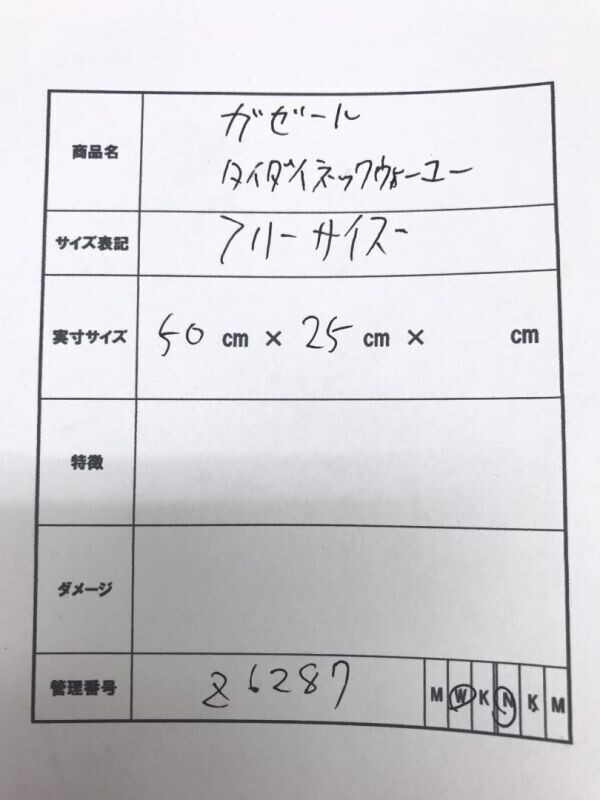 商品名 ガゼール
タイダイネックウォーユー
サイズ表記 フリーサイズ
実寸サイズ 50 cm × 25 cm × cm
特徴
ダメージ
管理番号 26287 M W K N K M